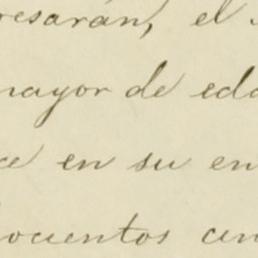 resarán, el
mayor de eda
ce en su en
ocientos cin